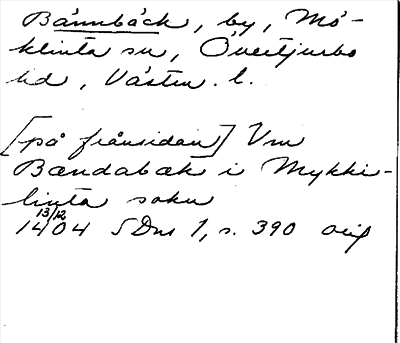 Bännbäck, by, Mö-
klinta sn, Övertjurbo
hd, Västm. l.
[på frånsidan] Vm
Bændabæk i Mykki-
linta sokn
14 13/12 04 SDns 1, s. 390 orig